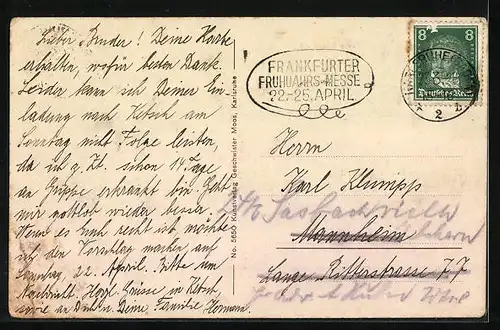 Lieber Bruder! Deine Karte
erhalten, wofür besten Dank.
Leider kann ich Deiner Ein-
ladung nach Ketsch am
Sonntag nicht Folge leisten,
da ich z. Zt. schon 14 Tage
an Grippe erkrankt bin. Geht
mir gottlob wieder besser.
Wenn es Euch recht ist, möchte
ich den Vorschlag machen auf
Sonntag, 22. April. Bitte um
Nachricht. Herzl. Grüsse in Ketsch,
sowie an Dich u. Deine Familie Hermann.
No. 5650 Kunstverlag Geschwister Moos, Karlsruhe
FRANKFURTER
FRÜHJAHRS-MESSE
22.-25. APRIL
8 8
Deutsches Reich
2
Herrn
Karl Klumpp
Mannheim
Lange Rötterstrasse 77